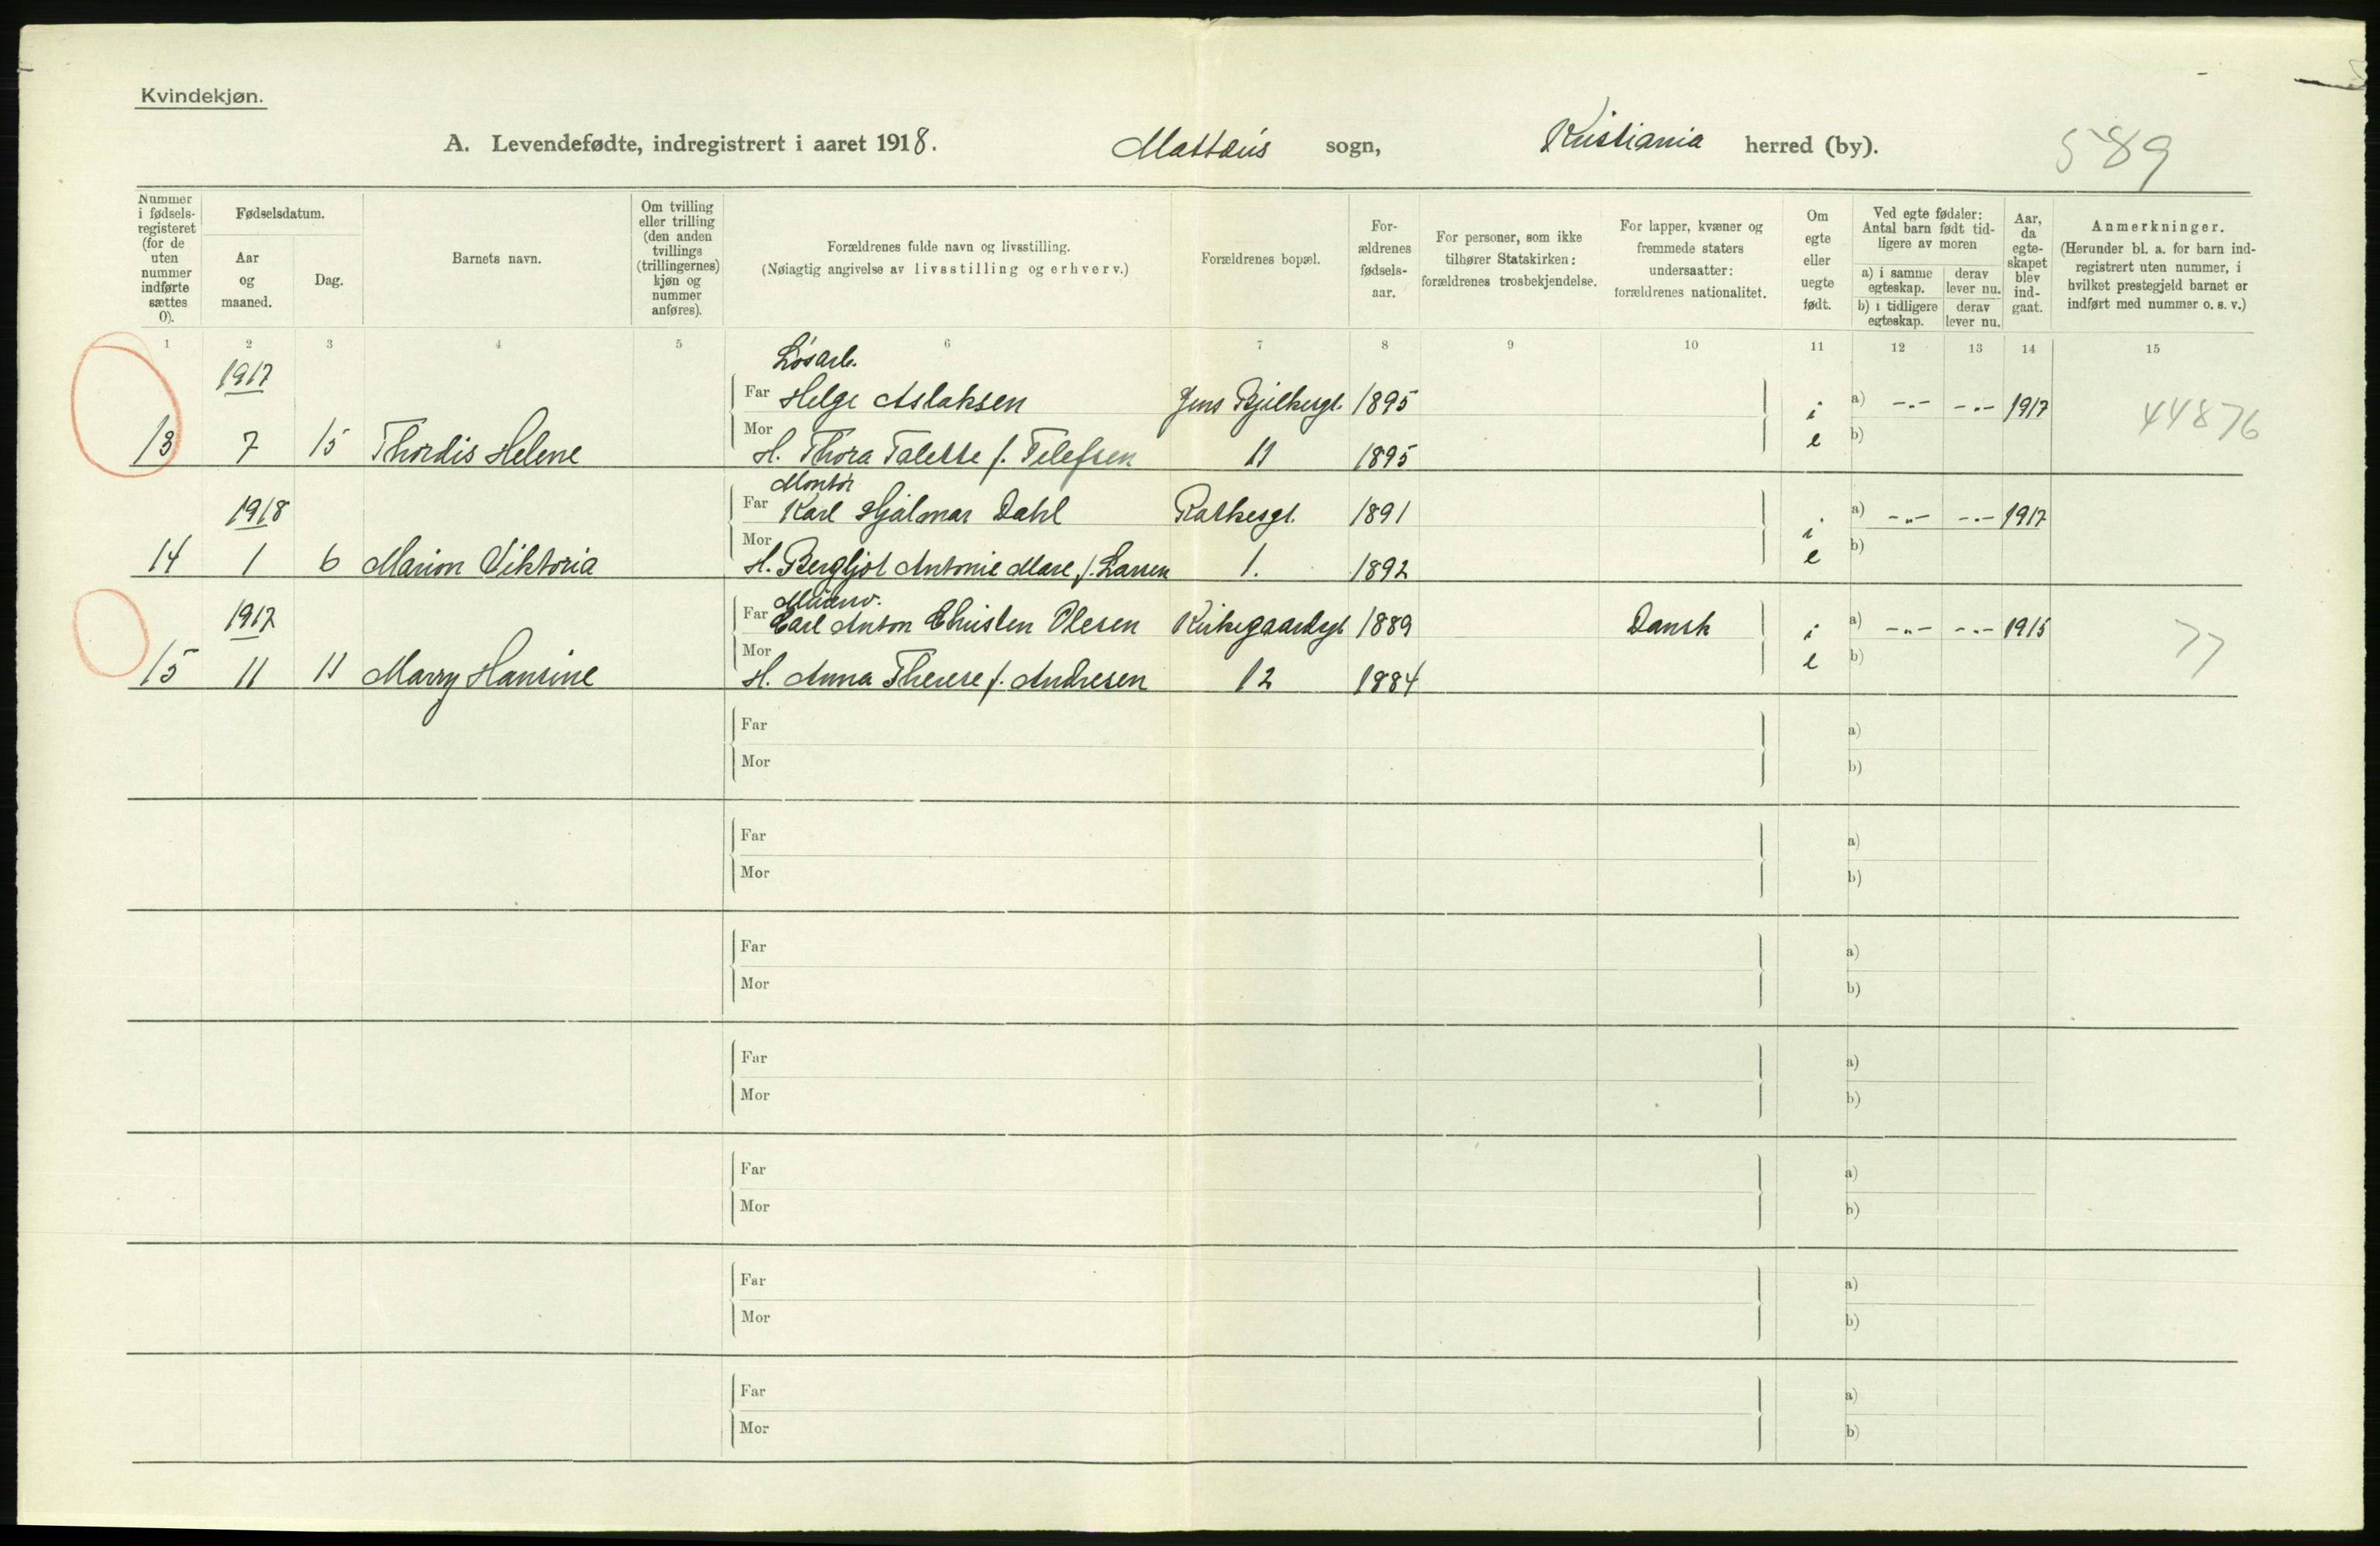 Kvindekjøn.
A. Levendefødte, indregistrert i aaret 1918. Mattæus sogn, Kristiania herred (by). 589
Nummer i fødsels-registeret (for de uten nummer indførte sættes 0).
Fødselsdatum.
Aar og maaned.
Dag.
Barnets navn.
Om tvilling eller trilling (den anden tvillings (trillingernes) kjøn og nummer anføres).
Forældrenes fulde navn og livsstilling.
(Nøiagtig angivelse av livsstilling og erhverv.)
Forældrenes bopæl.
For-ældrenes fødsels-aar.
For personer, som ikke tilhører Statskirken: forældrenes trosbekjendelse.
For lapper, kvæner og fremmede staters undersaatter: forældrenes nationalitet.
Om egte eller uegte født.
Ved egte fødsler: Antal barn født tid-ligere av moren
a) i samme egteskap. derav lever nu.
b) i tidligere egteskap. derav lever nu.
Aar, da egte-skapet blev ind-gaat.
Anmerkninger.
(Herunder bl. a. for barn ind-registrert uten nummer, i hvilket prestegjeld barnet er indført med nummer o. s. v.)
1 2 3 4 5 6 7 8 9 10 11 12 13 14 15
Løsarb.
1917 Far Helge Aslaksen Jens Bjelkesgt. 1895 i a) -"- -"- 1917 44876
13 7 15 Thordis Helene Mor H. Thora Talette f. Telefsen 11 1895 e b)
Montør
1918 Far Karl Hjalmar Dahl Rathesgt. 1891 i a) -"- -"- 1917
14 1 6 Marion Viktoria Mor H. Bergljot Antonie Mare f. Larsen 1. 1892 e b)
1917 Far Carl Anton Christen Olesen Kirkegaardsgt 1889 Dansk i a) -"- -"- 1915 77
15 11 11 Marry Hansine Mor H. Anna Therese f. Andresen 12 1884 e b)
Far a)
Mor b)
Far a)
Mor b)
Far a)
Mor b)
Far a)
Mor b)
Far a)
Mor b)
Far a)
Mor b)
Far a)
Mor b)